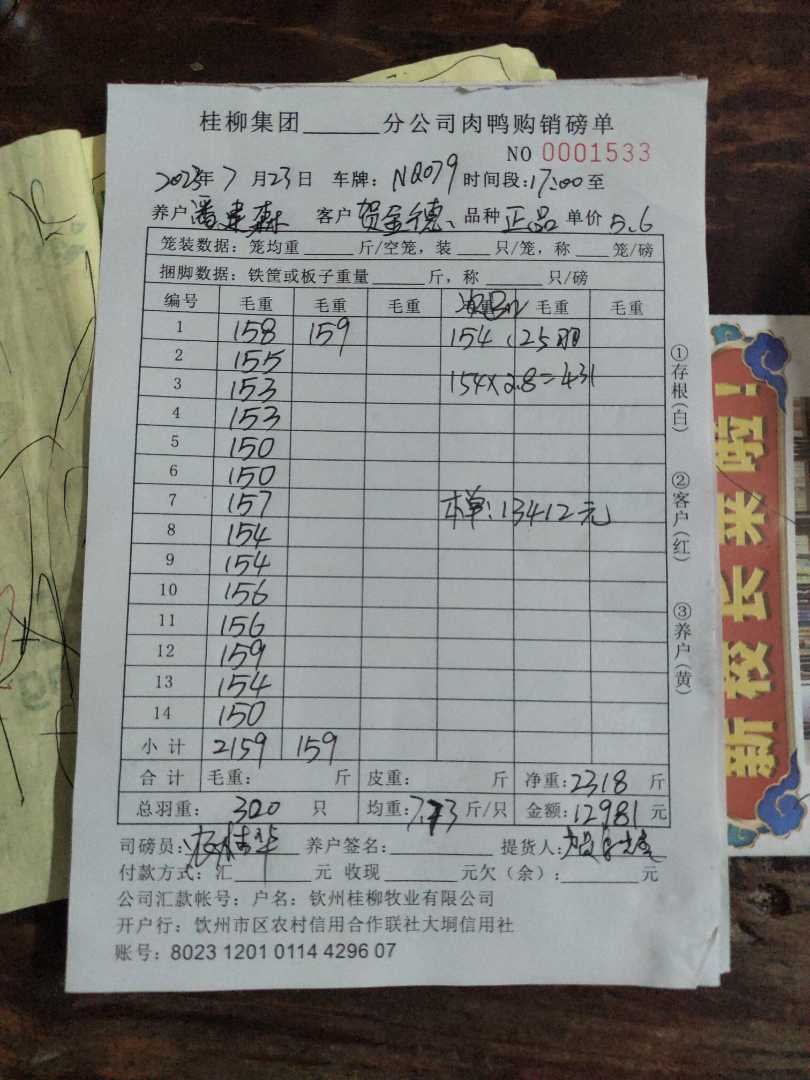 桂柳集团______分公司肉鸭购销磅单
NO 0001533
2023年7月23日 车牌：NQ079 时间段：17:00至
养户 潘建森 客户 贺金德 品种 正品 单价 5.6
笼装数据：笼均重____斤/空笼，装____只/笼，称____笼/磅
捆脚数据：铁筐或板子重量____斤，称____只/磅
编号 毛重 毛重 毛重 毛重 毛重 毛重
1 158 159 154 25羽
2 155
3 153 154×2.8=431
4 153
5 150
6 150
7 157 本单：13412元
8 154
9 154
10 156
11 156
12 159
13 154
14 150
小计 2159 159
合计 毛重： 斤 皮重： 斤 净重：2318 斤
总羽重：300 只 均重：7.73 斤/只 金额：12981 元
司磅员： 养户签名：________ 提货人：
付款方式：汇______元 收现______元欠（余）：______元
公司汇款帐号：户名：钦州桂柳牧业有限公司
开户行：钦州市区农村信用合作联社大垌信用社
账号：8023 1201 0114 4296 07
①存根（白）
②客户（红）
③养户（黄）
新校长来啦！